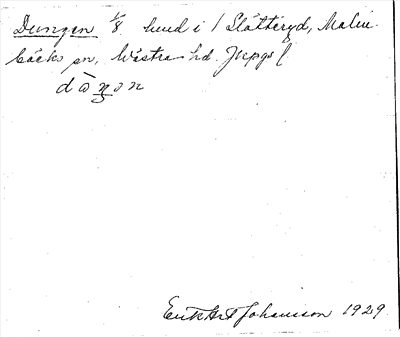 Dungen 1/8 hmd i 1 Slätteryd, Malm-
bäcks sn, Västra hd. Jkpgs l
dàŋon
Erik Art Johansson 1929